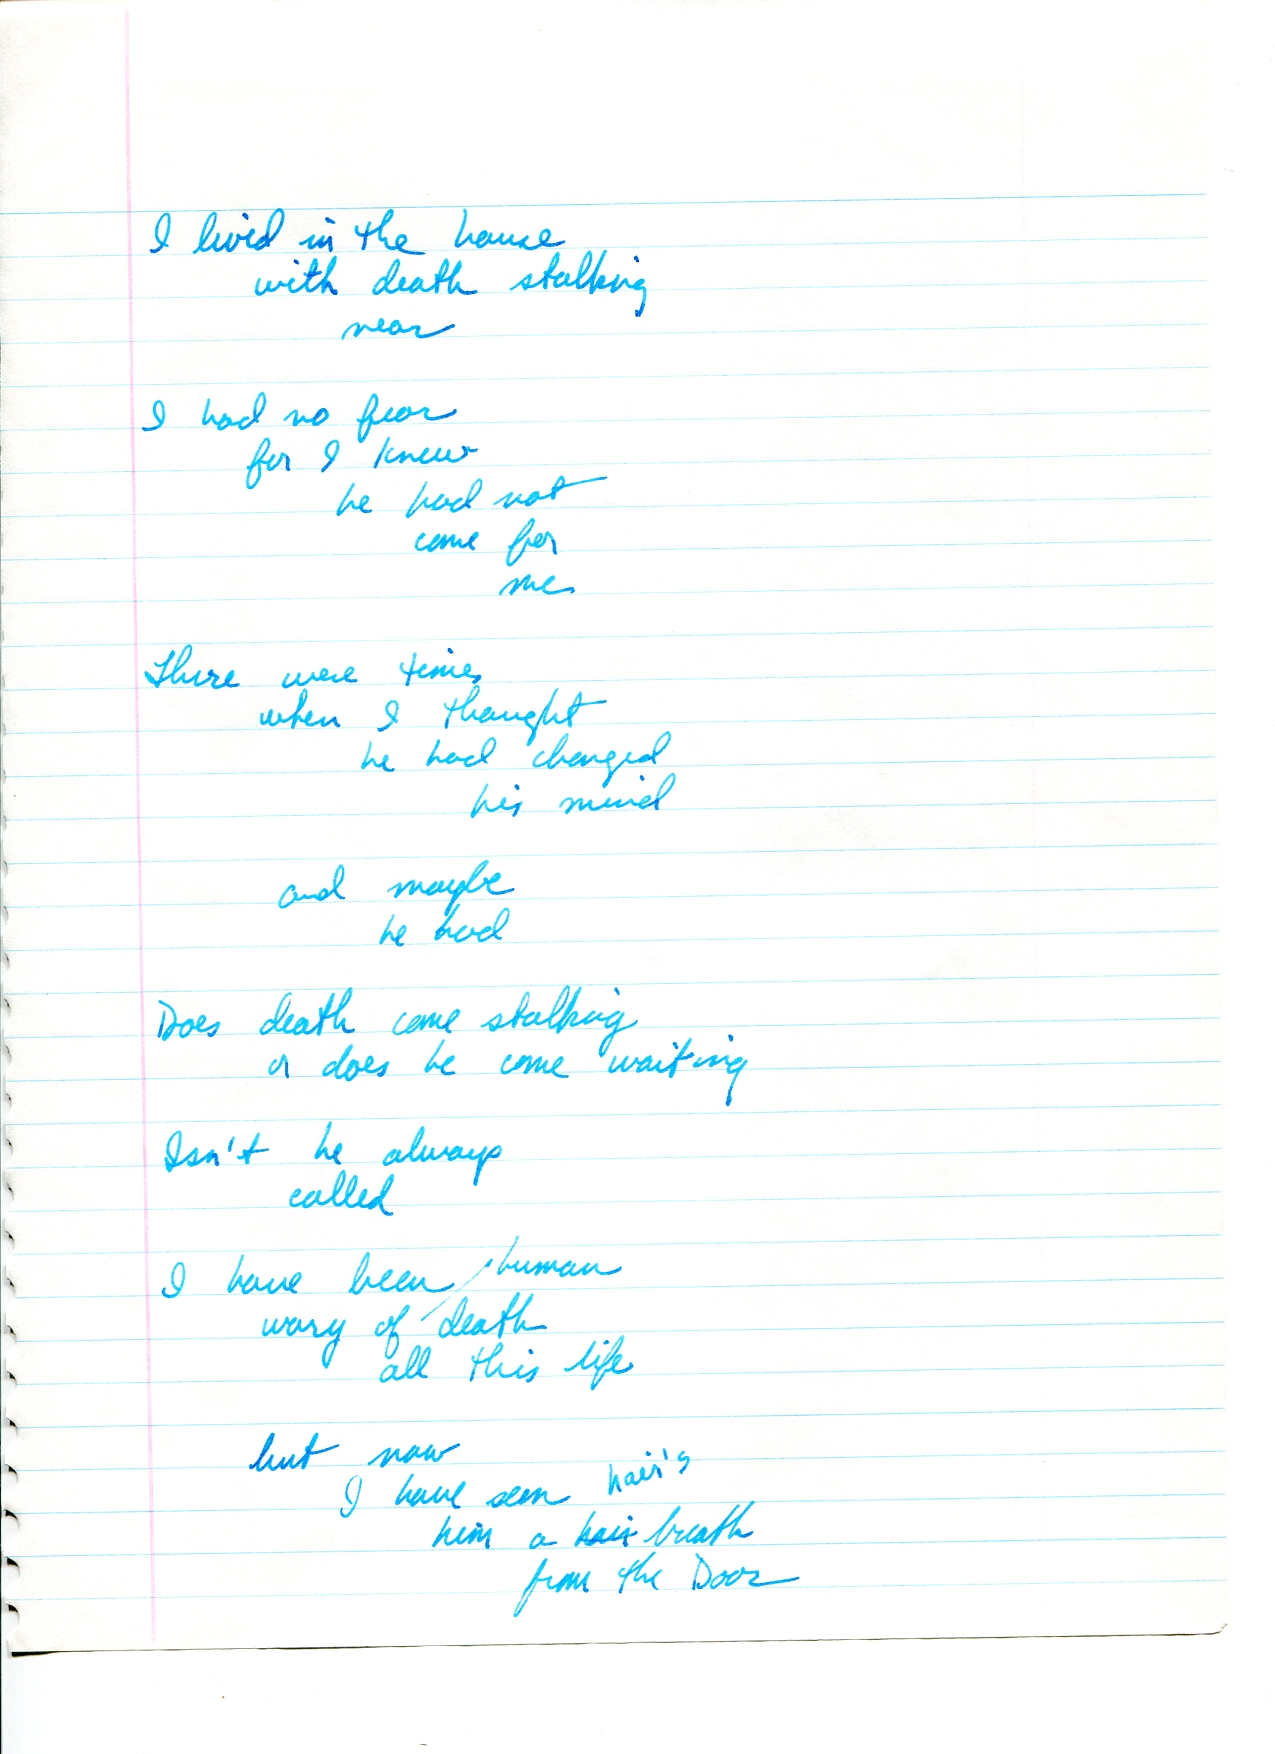 I lived in the house
with death stalking
near
I had no fear
for I knew
he had not
come for
me
There were times
when I thought
he had changed
his mind
and maybe
he had
Does death come stalking
or does he come waiting
Isn't he always
called
I have been human
wary of death
all this life
but now
I have seen hair's
him a hair breath
from the Door